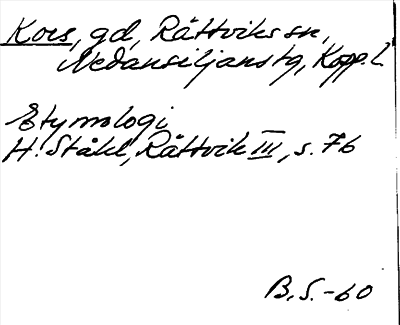 Kors, gd, Rättviks sn,
Nedansiljans tg, Kopp. l.
Etymologi
H. Ståhl, Rättvik III, s. 76
B. S. -60